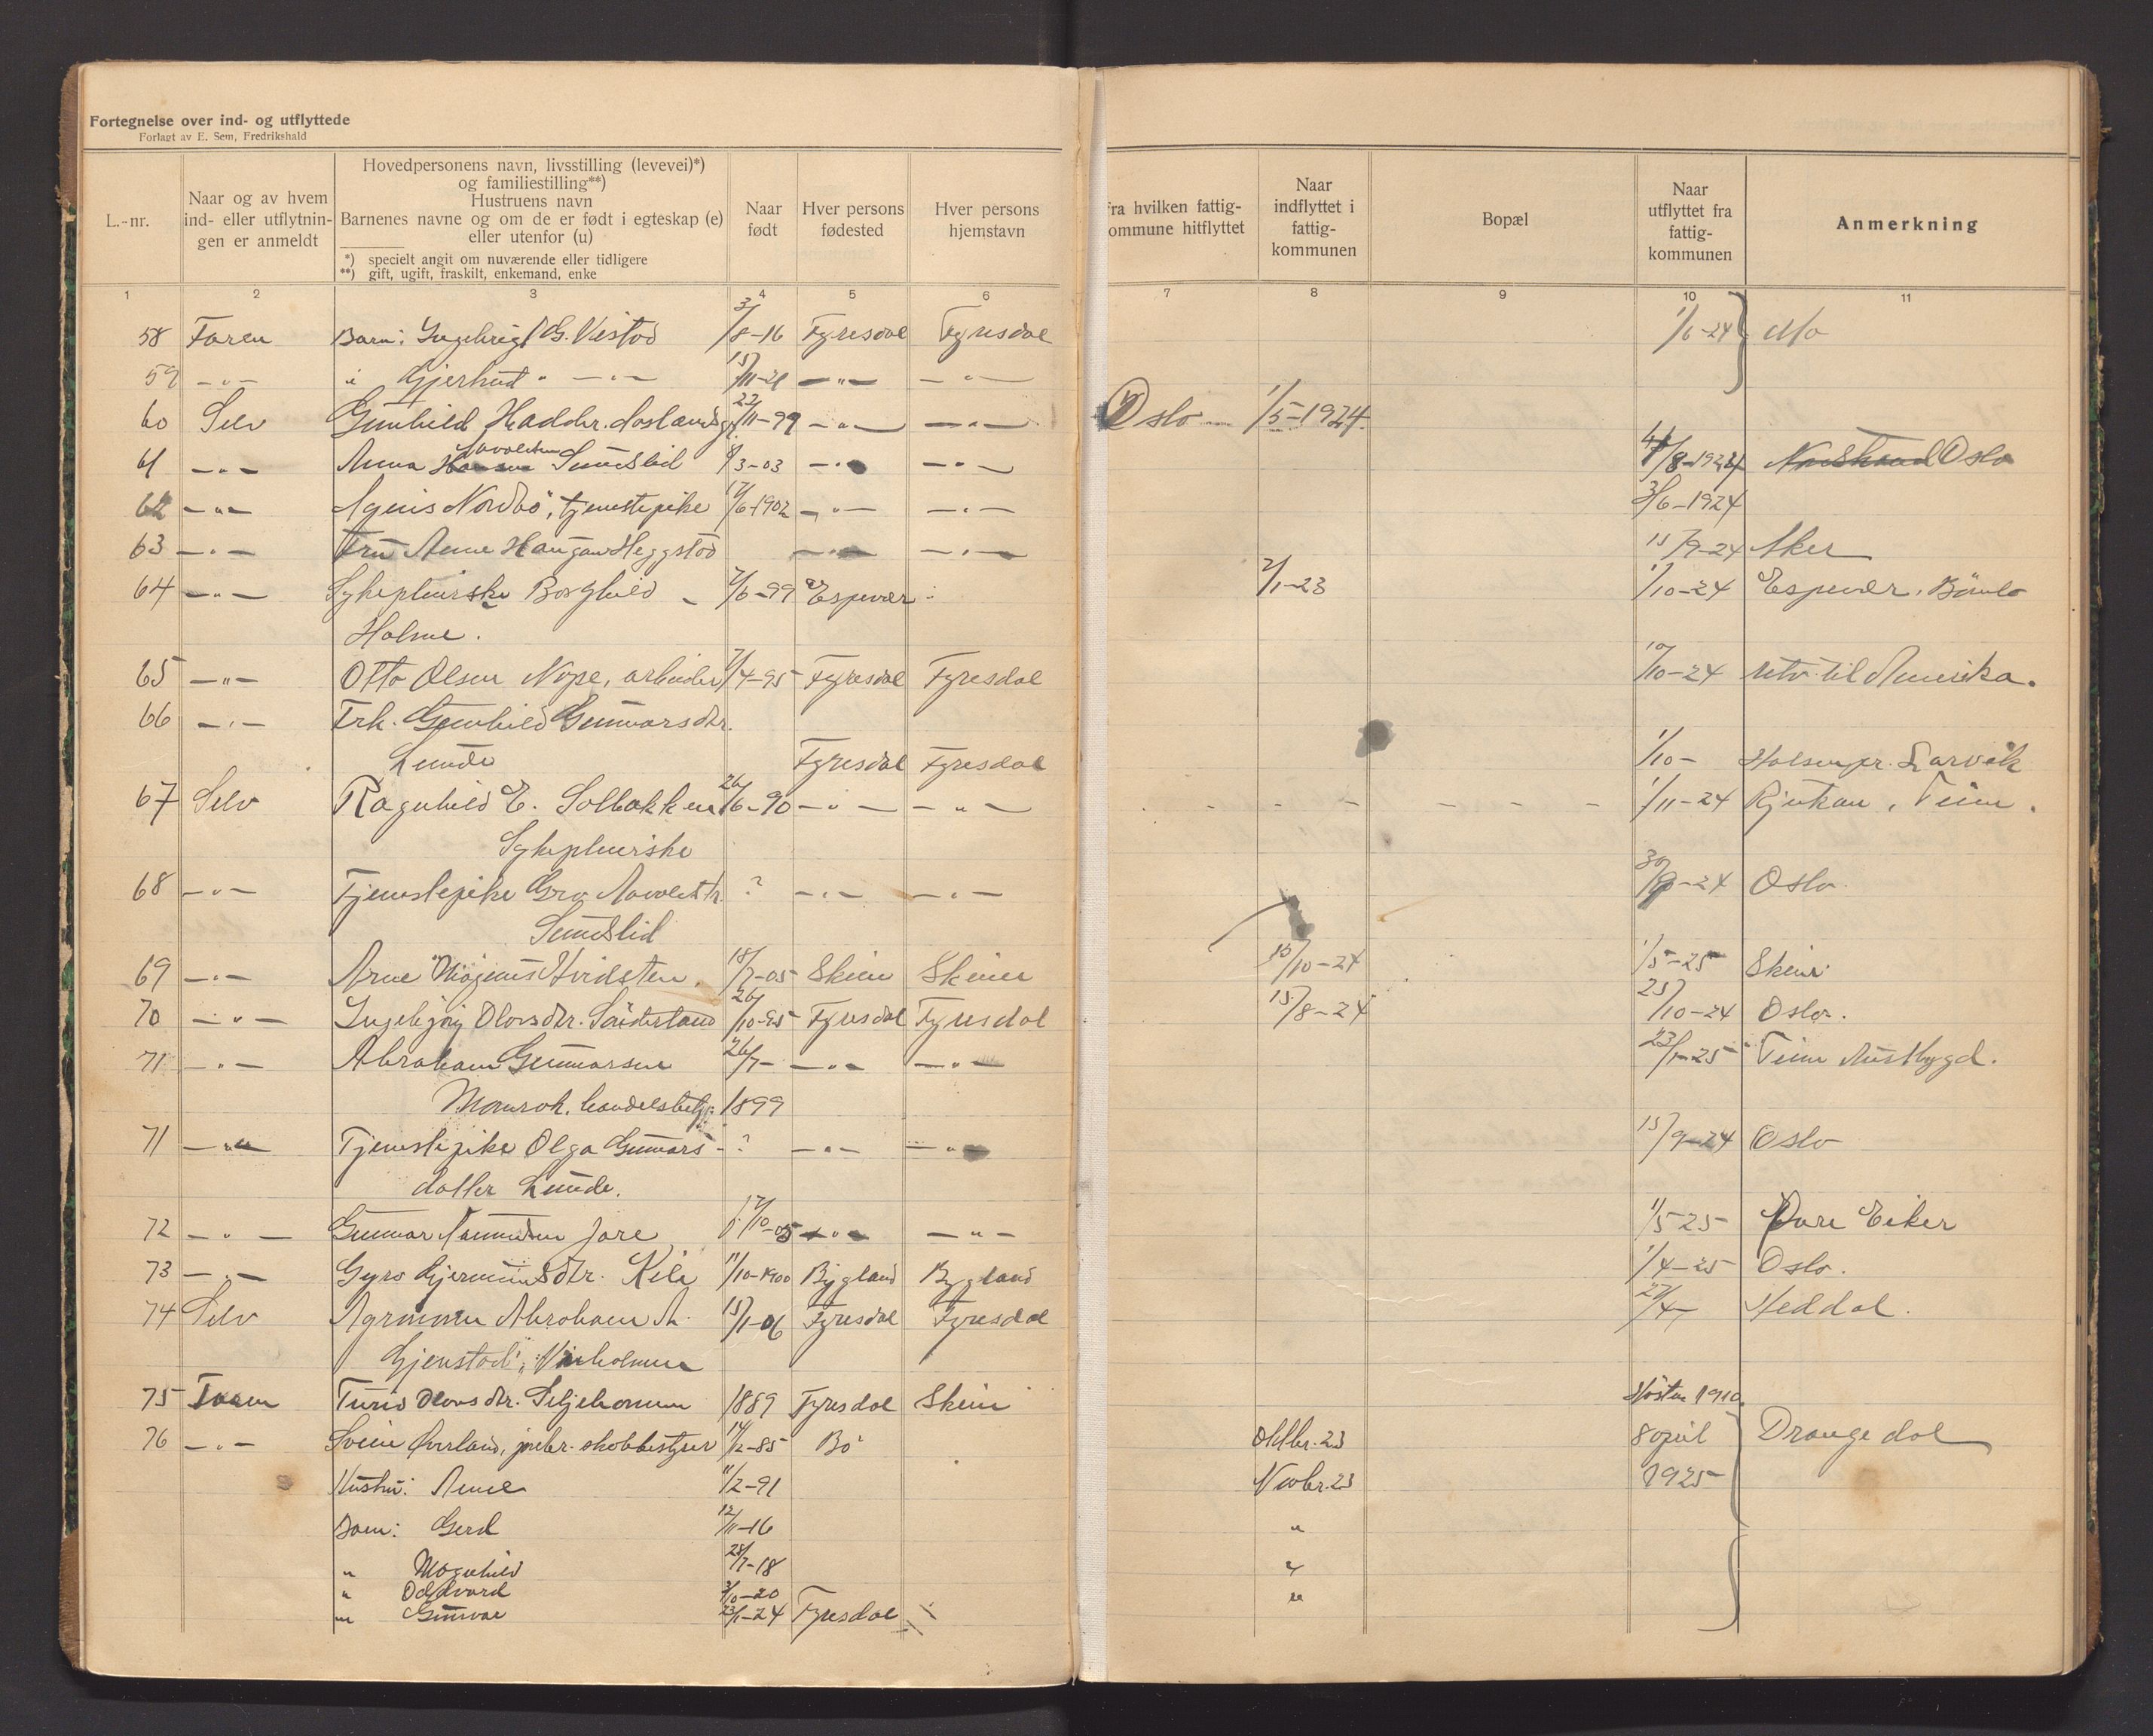 Fortegnelse over ind- og utflyttede
Forlagt av E. Sem, Fredrikshald
L.-nr.
Naar og av hvem
ind- eller utflytnin-
gen er anmeldt
Hovedpersonens navn, livsstilling (levevei)*)
og familiestilling**)
Hustruens navn
Barnenes navne og om de er født i egteskap (e)
eller utenfor (u)
*) specielt angit om nuværende eller tidligere
**) gift, ugift, fraskilt, enkemand, enke
Naar
født
Hver persons
fødested
Hver persons
hjemstavn
fra hvilken fattig-
ommune hitflyttet
Naar
indflyttet i
fattig-
kommunen
Bopæl
Naar
utflyttet fra
fattig-
kommunen
Anmerkning
1 2 3 4 5 6 7 8 9 10 11
58 Faren Barn: Ingebrigt G. Veistad 3/8-16 Fyresdal Fyresdal 1/6-24 Mo
59 -"- " Gjerhud " -"- 15/11-21 -"- -"-
60 Selv Gunhild Haddr. 22/11-99 -"- -"- Oslo 1/5-1924
61 -"- Anna Aavoldsen Sundslid 8/3-03 -"- -"- 1/8-1924 Oslo
62 -"- Agnis Nordbö, tjenestepike 17/6-1902 -"- -"- 3/6-1924
63 -"- Fru Anne Haugan Heggstød -"- -"- 15/9-24 Aker
64 -"- Sykepleierske Borghild 7/6-99 Espevær 2/1-23 1/10-24 Espevær, Bömlo
Holme.
65 -"- Otto Olsen Nape, arbeider 7/4-95 Fyresdal Fyresdal 10/10-24 utv. til Amerika.
66 -"- Frk. Gunhild Gunnarsdtr.
Lunde Fyresdal Fyresdal 1/10- Larvik
67 Selv Ragnhild E. Solbakken 26/6-90 -"- -"- 1/11-24 Rjukan, Tinn.
Sykepleierske
68 -"- Tjenestepike Gro Aavoldsdtr. ? -"- -"- 30/9-24 Oslo
Sundslid
69 -"- Arne Mogens Hvidsten. 18/7-05 Skien Skien 10/10-24 1/5-25 Skien
70 -"- Ingebjörg Olovsdtr. 26/10-95 Fyresdal Fyresdal 15/8-24 25/10-24 Oslo.
71 -"- Abraham Gunnarsen 26/7- -"- -"- 23/1-25 Tinn Austbygd.
Momrak, handelsbetj. 1899
71 -"- Tjenestepike Olga Gunnars- ? -"- -"- 15/9-24 Oslo
datter Lunde.
72 -"- Gunnar Aanundsen Jore 17/10-05 -"- -"- 1/5-25 Övre Eiker
73 -"- Gyro Gjermundsdtr. Kile 11/10-1900 Bygland Bygland 1/4-25 Oslo.
74 Selv Agronom Abraham A. 15/1-06 Fyresdal Fyresdal 27/4- Heddal.
75 Faren Turid Olovsdtr. 1889 Fyresdal Skien Hösten 1910.
76 -"- Svein Överland, 14/2-85 Bö Oktbr. 23 8 april Drangedal
Hustru: Anne 11/2-91 Novbr. 23 1925
Barn: Gerd 12/11-16 "
" Magnhild 28/7-18 "
" Oddvard 3/10-20 "
" Gunvor 23/1-24 Fyresdal